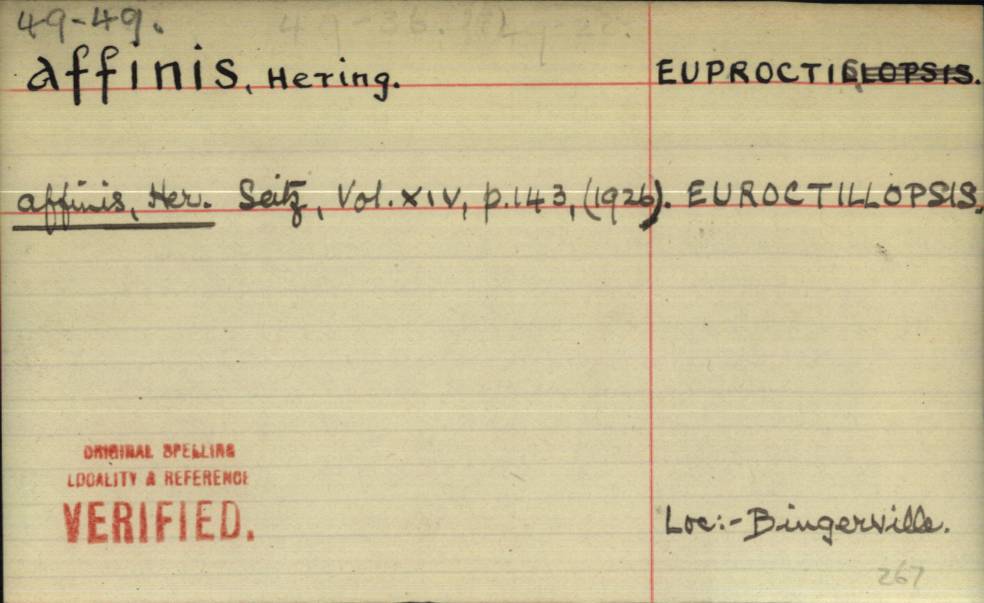 49-49.
affinis, Hering. EUPROCTIS.
affinis, Her. Seitz, Vol. XIV, p.143, (1926). EUROCTILLOPSIS.
ORIGINAL SPELLING
LOCALITY & REFERENCE
VERIFIED.
Loc:- Bingerville.
267